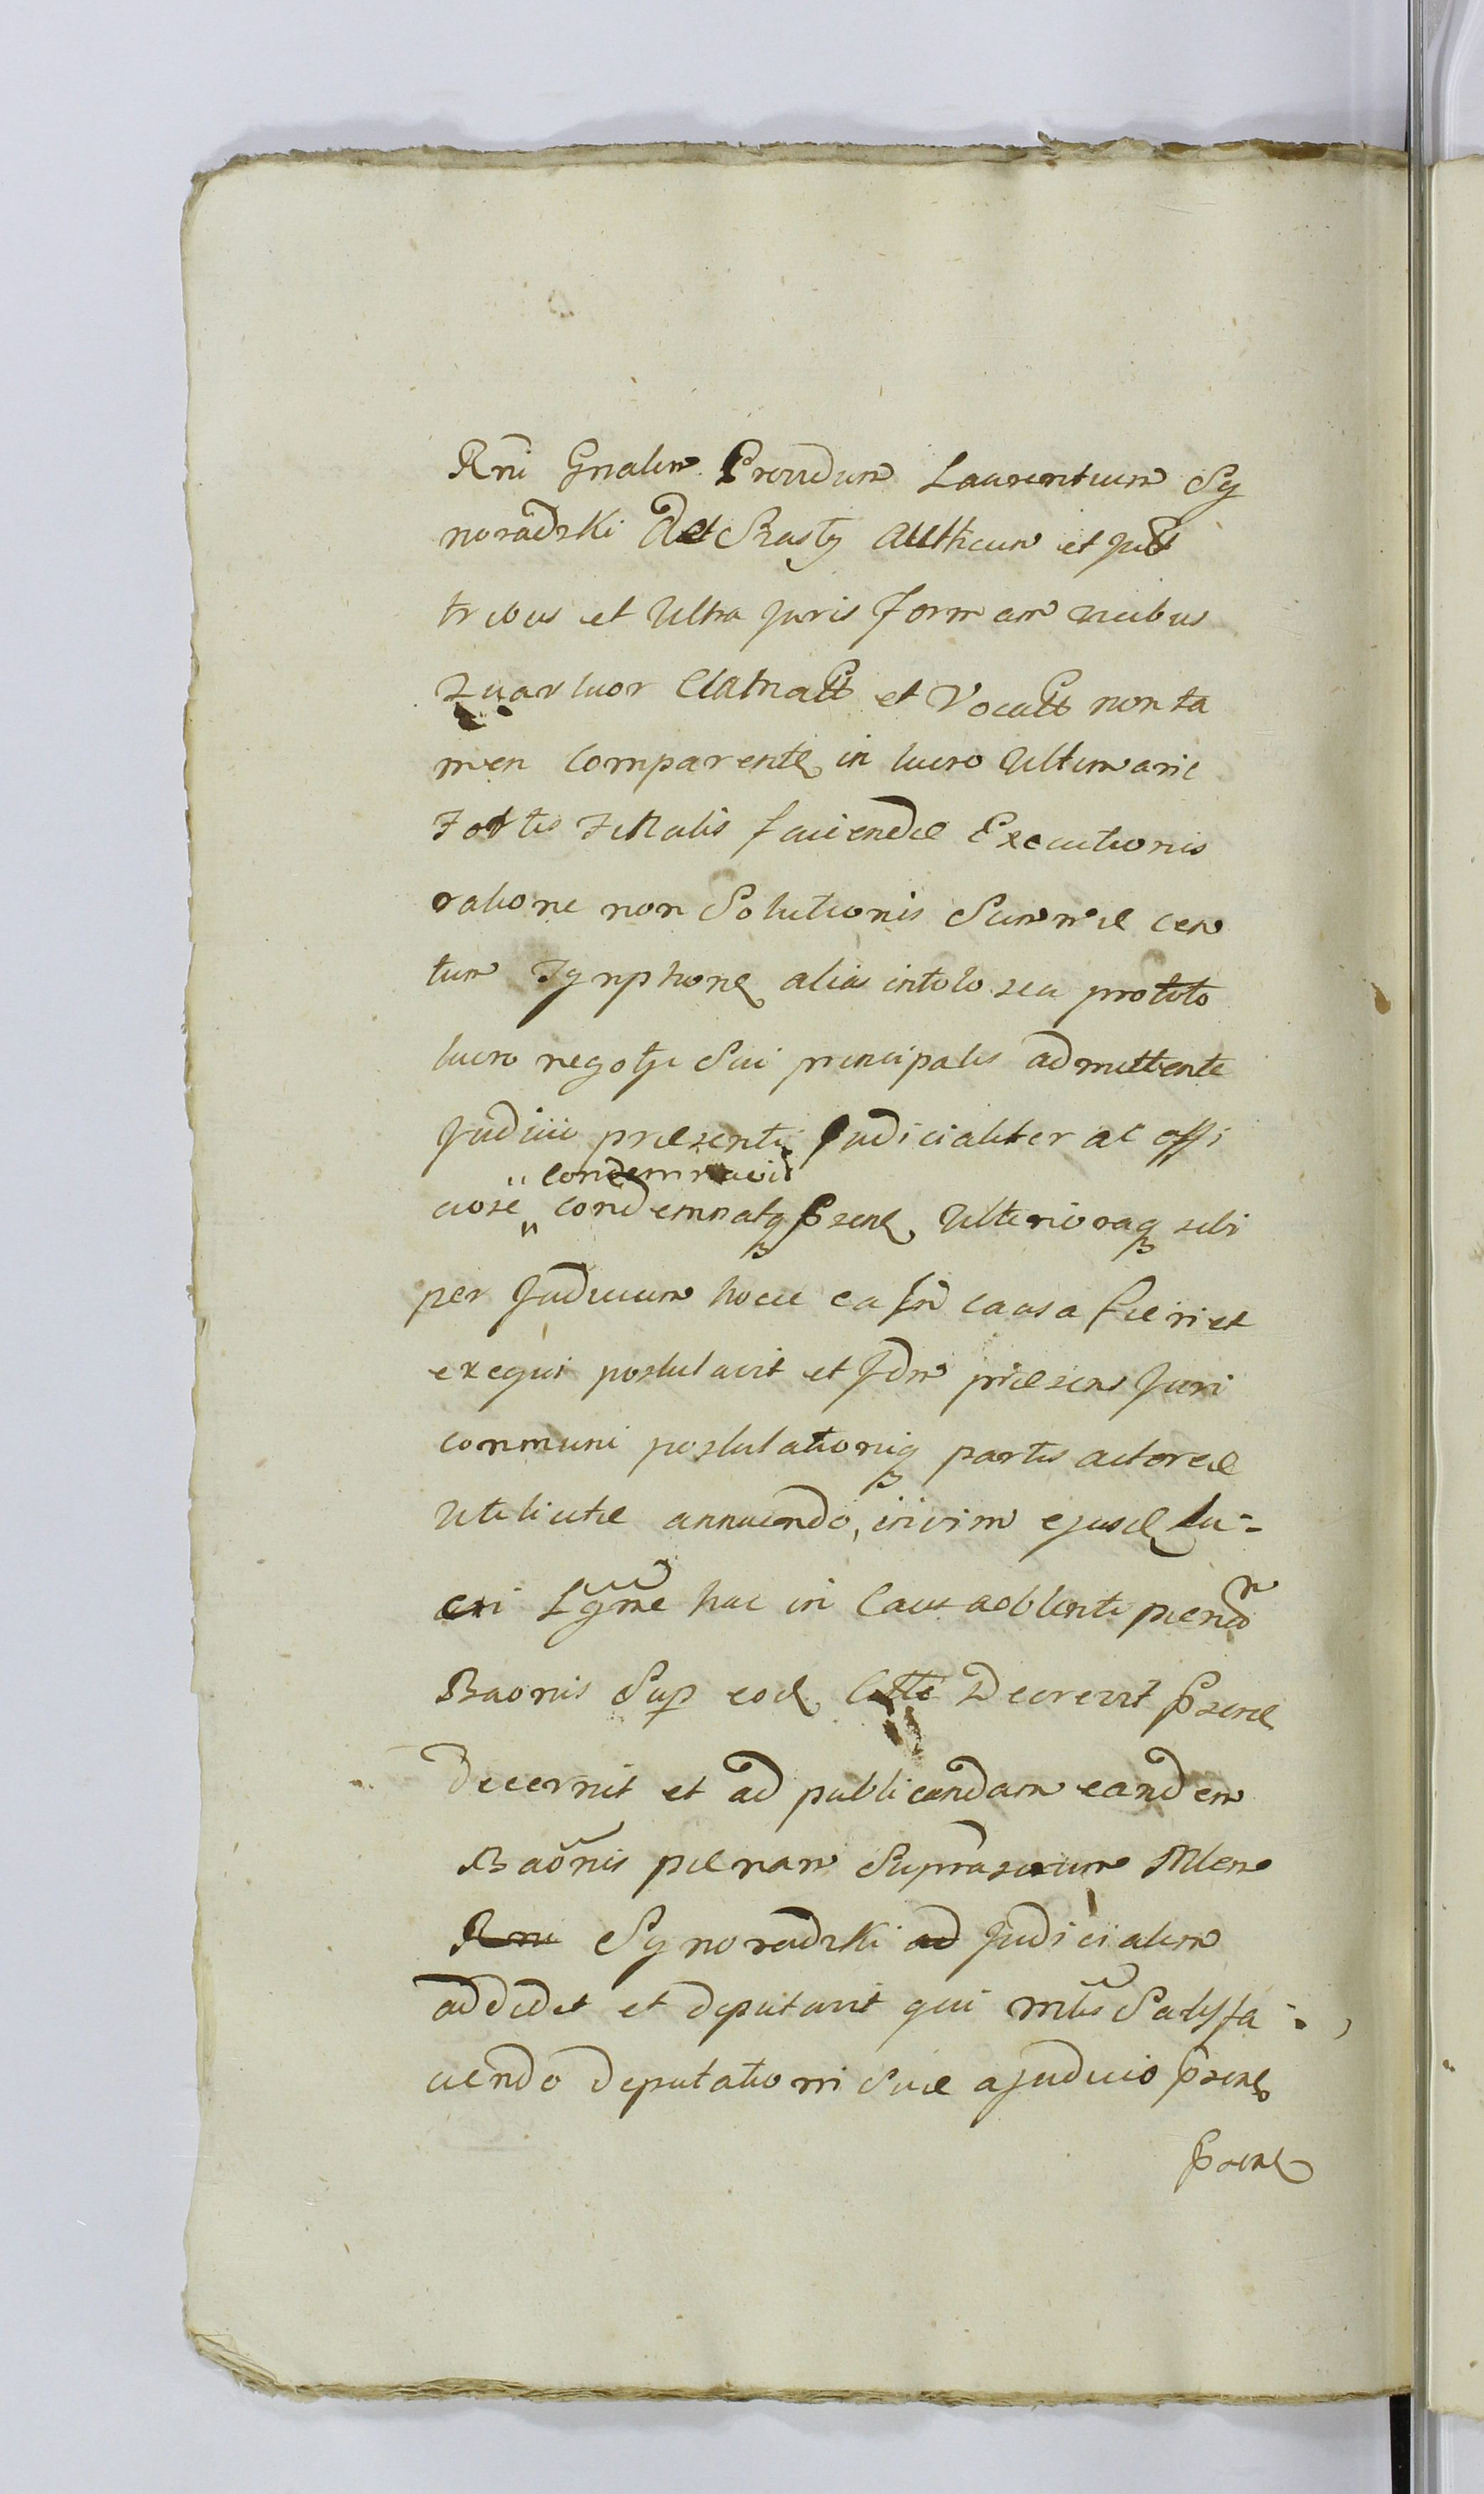 Rni Gnalem Providum Laurentium Sy
noradzki Act Crasty Autticum et just
tribus et Ultra juris formam vicibus
quartuor Clamatt et Vocatt non ta
men Comparente, in lucro Ultimarie
totis totalis faciendæ Executionis
ratione non Solutionis Summæ cen
tum Tynphone alias intoto seu prototo
lucro negotji Sui principalis admittente
Judicii præsenti Judicialiter ac offi
condemnavit
ciose condemnatq psene, Ulterioraq sibi
per Judicium hocce ea in causa fieri et
exequi postulavit et Jdm præsens Juri
communi postulationiq partis actoreæ
utilicitæ annuendo, in vim ejusd lu=
cri Lgme hac in Causa oblenti pænam
Baonis Sup eod, Citto Decrevit psene
Decernit et ad publicandam eandem
Baonis pænam Suprascum Mlem
Rni Synoradzki ad judicialem
addidit et deputavit qui Mlis Satisfa=
ciendo deputationi Suæ a judicio psene
psene